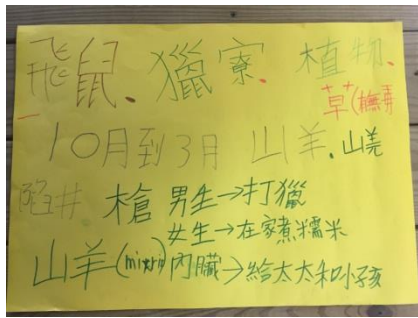 飛鼠、獵寮、植物、
草(
10月到3月 山羊、山羌
陷井 槍 男生→打獵
女生→在家煮糯米
山羊( 內臟→給太太和小孩